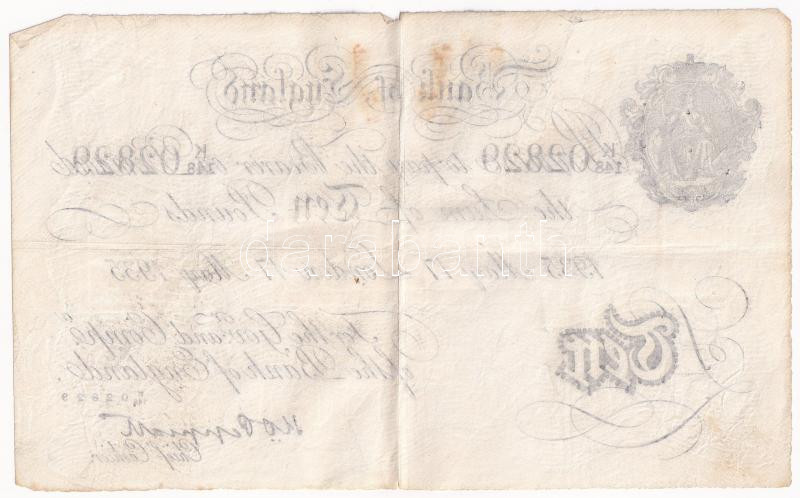 Bank of England
K/148 02829 to pay the Bearer K/148 02829
the Sum of Ten Pounds
1935 May 17 London 17 May 1935
darabanth
For the Gov.r and Comp.a
of the Bank of England.
Ten
K.O. Peppiatt
Chief Cashier